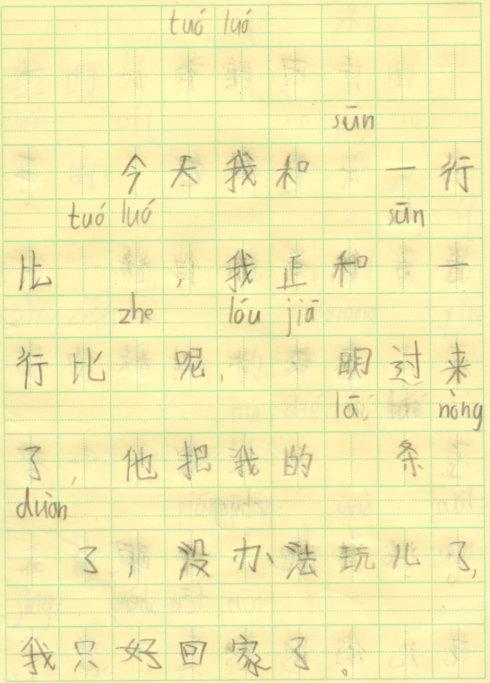 tuó luó
sūn
今天我和 一行
tuó luó sūn
比 ,我正和 一
zhe lóu jiā
行比 呢, 明过来
lā nòng
了,他把我的 条
duàn
了,没办法玩儿了,
我只好回家了。